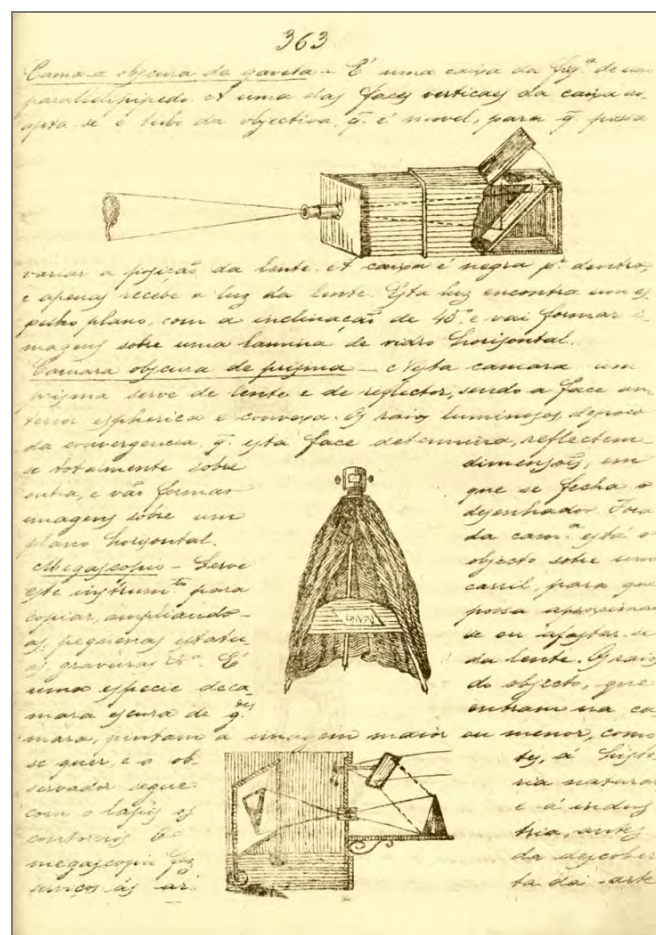 363
Camara obscura de gaveta – É uma caixa da fig.ª de um
paralelipipedo. A uma das faces verticaes da caixa ad-
apta-se o tubo da objectiva, q̃. é movel, para q̃. possa
variar a posição da lente. A caixa é negra p.r dentro,
e apenas recebe a luz da lente. Esta luz encontra um es-
pelho plano, com a inclinação de 45°, e vai formar i-
magens sobre uma lamina de vidro horisontal.
Camara obscura de prisma – Nesta camara um
prisma serve de lente e de reflector, sendo a face an-
terior espherica e convexa. Os raios luminosos, depois
da convergencia q̃. esta face determina, reflectem-
se totamente sobre
outra, e vão formar
imagens sobre um
plano horisontal.
Megascopio – Serve
este instrum.to para
copiar, ampliando-
as, pequenas estatu-
as, gravuras &.ª É
uma especie de ca-
mara escura de g.des
dimensões, em
que se fecha o
desenhador. Fóra
da cam.ª está o
objecto sobre um
carril, para que
possa aproximar
se ou afastar-se
da lente. Os raios
do objecto, que
entram na ca-
mara, pintam a imagem maior ou menor, como
se quér, e o ob-
servador segue
com o lapis os
contornos. O
megascopio fez
serviços ás ar-
tes, á histo-
ria natural
e á indus
tria, antes
da descober
ta da arte